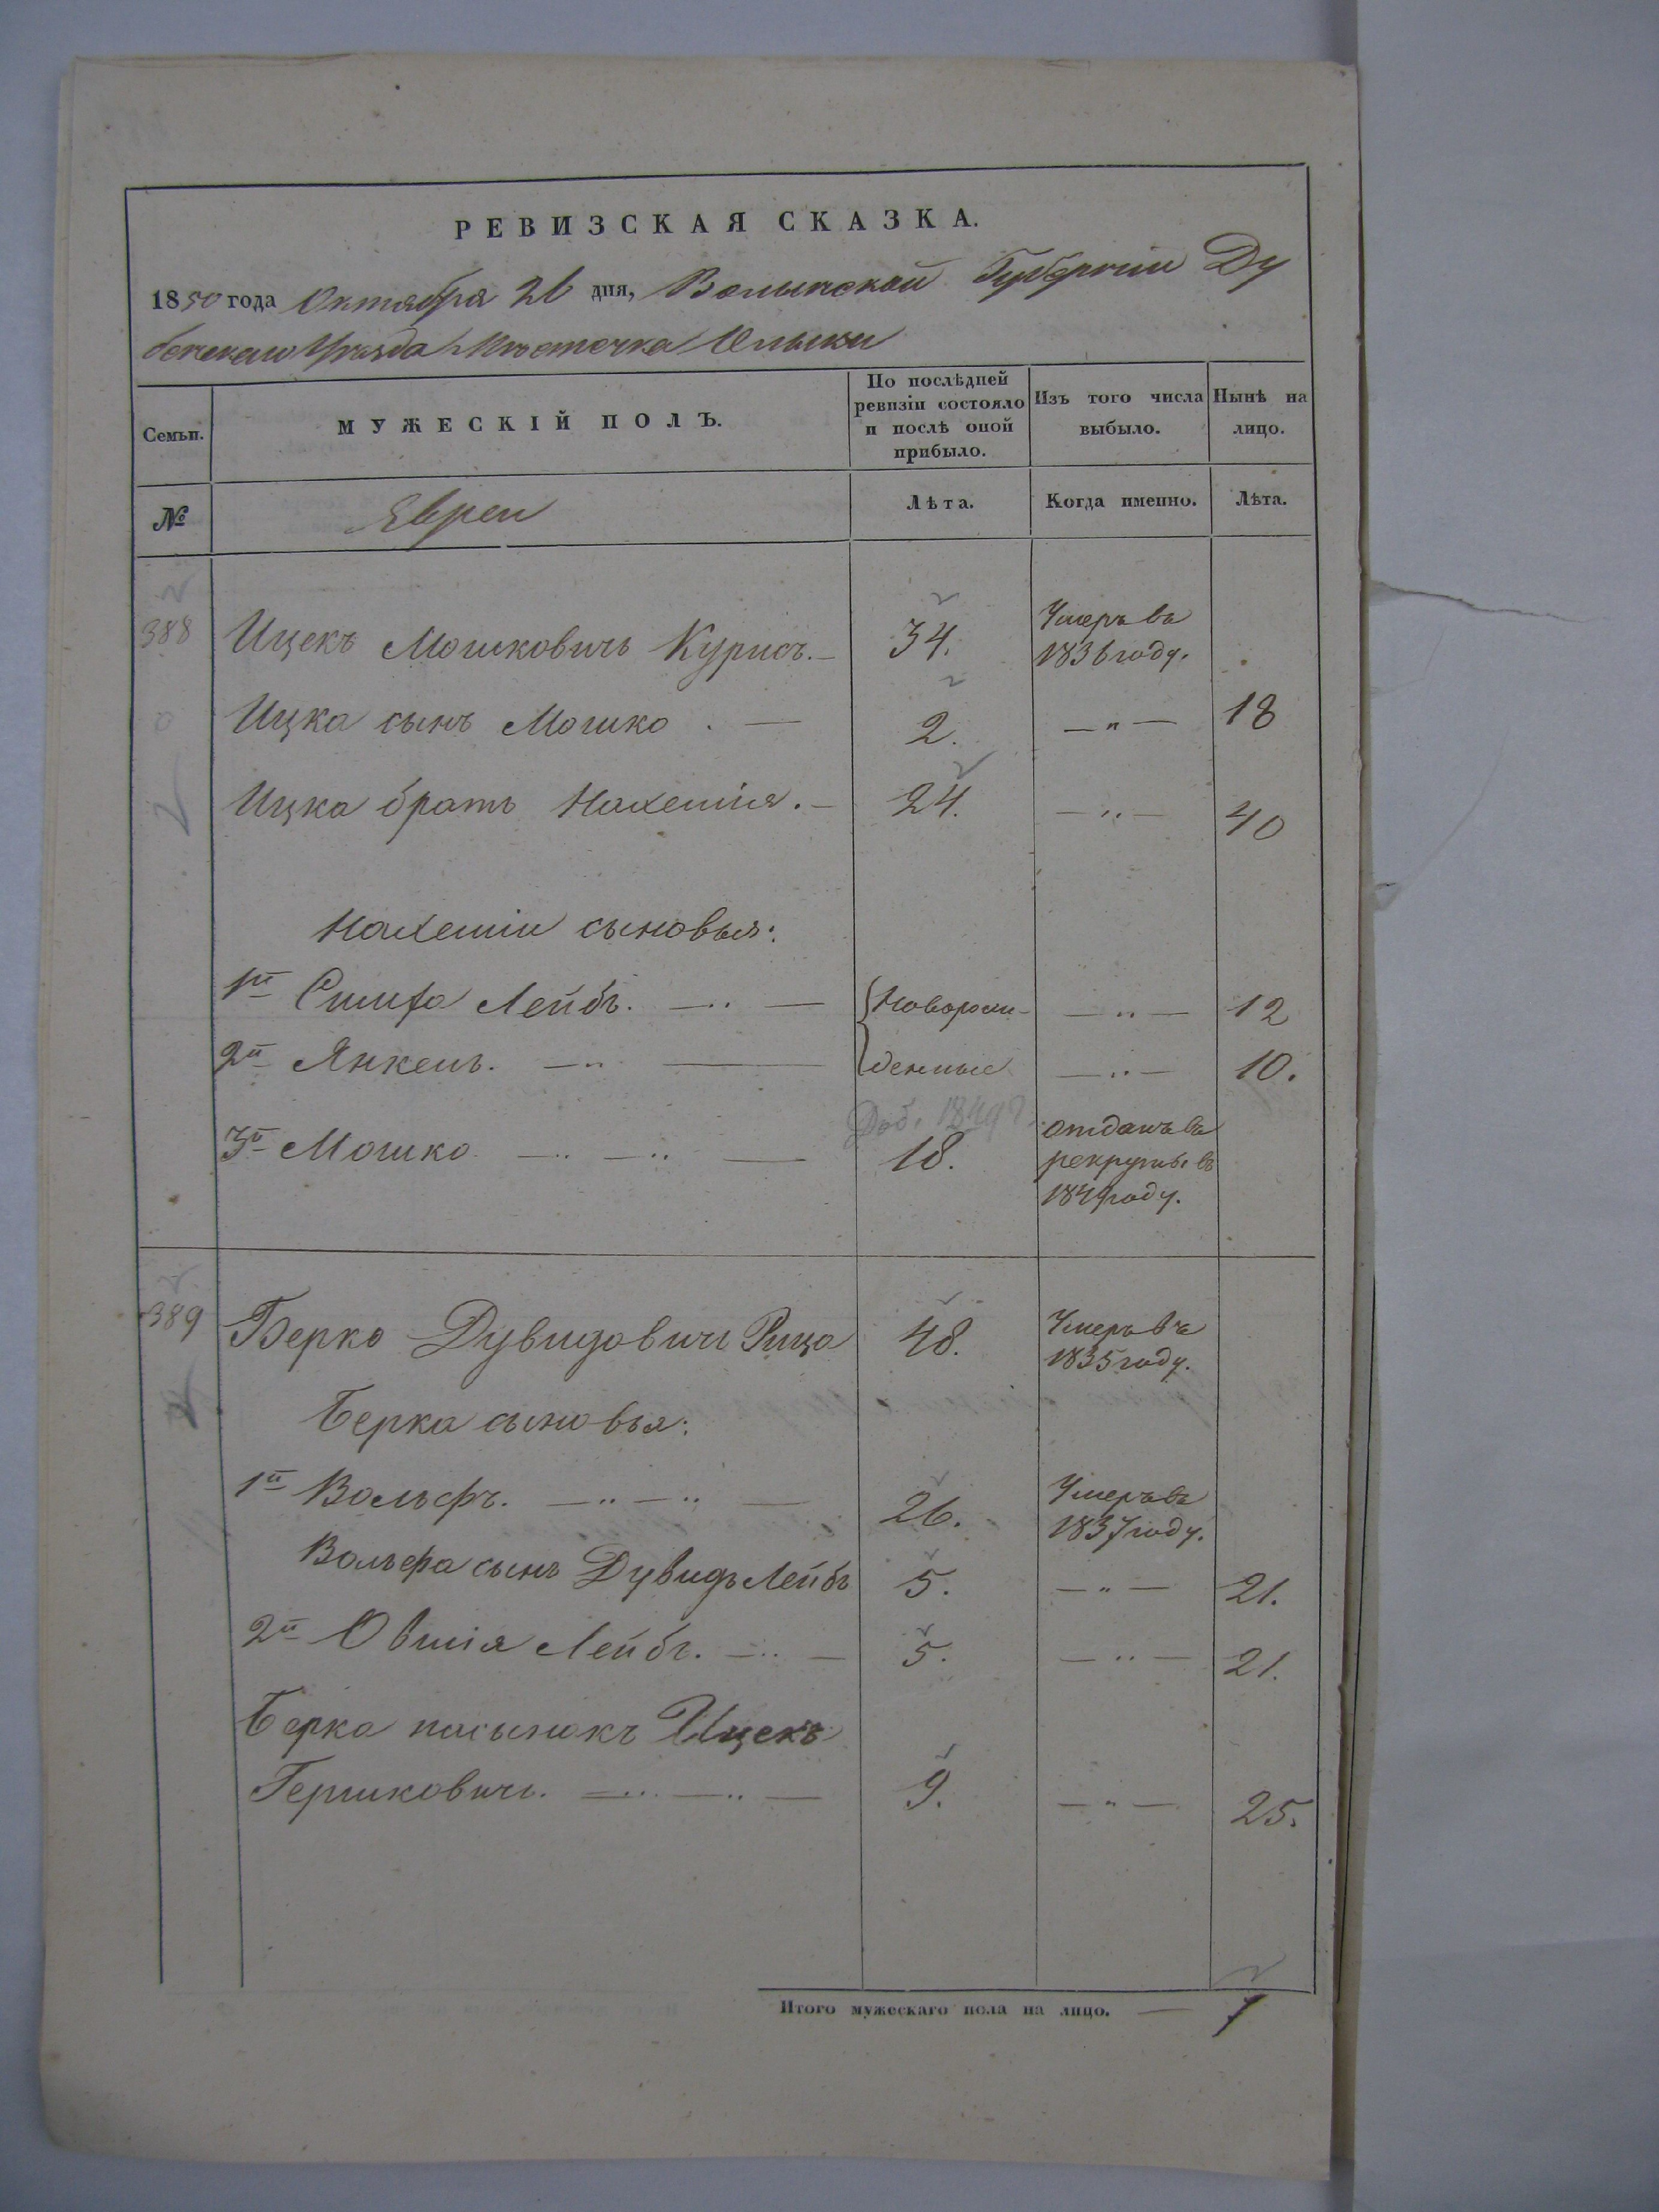 РЕВИЗСКАЯ СКАЗКА.
1850 года Октября 26 дня, Волынской Губерніи Ду
бенскаго Уѣзда Мѣстечка Олыки
Семьи.
МУЖЕСКІЙ ПОЛЪ.
По послѣдней
ревизіи состояло
и послѣ оной
прибыло.
Изъ того числа
выбыло.
Нынѣ на
лицо.
№
Евреи
Лѣта.
Когда именно.
Лѣта.
388 Ицекъ Мошковичъ Курисъ. — 34. Умеръ въ
1836 году.
Ицка сынъ Мошко . — 2. — " — 18
Ицка братъ Нахемія. — 24. — " — 40
Нахеміи сыновья:
1й Лейбъ. — " — { Новорож- — " — 12
2й Янкель. — " — денные — " — 10.
Доб. 1849
3й Мошко — " — " — 18. отданъ въ
рекруты въ
1849 году.
389 Берко Дувидовичъ Рица 48. Умеръ въ
1835 году.
Берка сыновья:
1й Вольфъ. — " — " — 26. Умеръ въ
1837 году.
Вольфа сынъ Дувидъ Лейбъ 5. — " — 21.
2й Овшія Лейбъ. — " — 5. — " — 21.
Берка пасынокъ Ицекъ
Гершковичъ. — " — " — 9. — " — 25.
Итого мужескаго пола на лицо. — 7